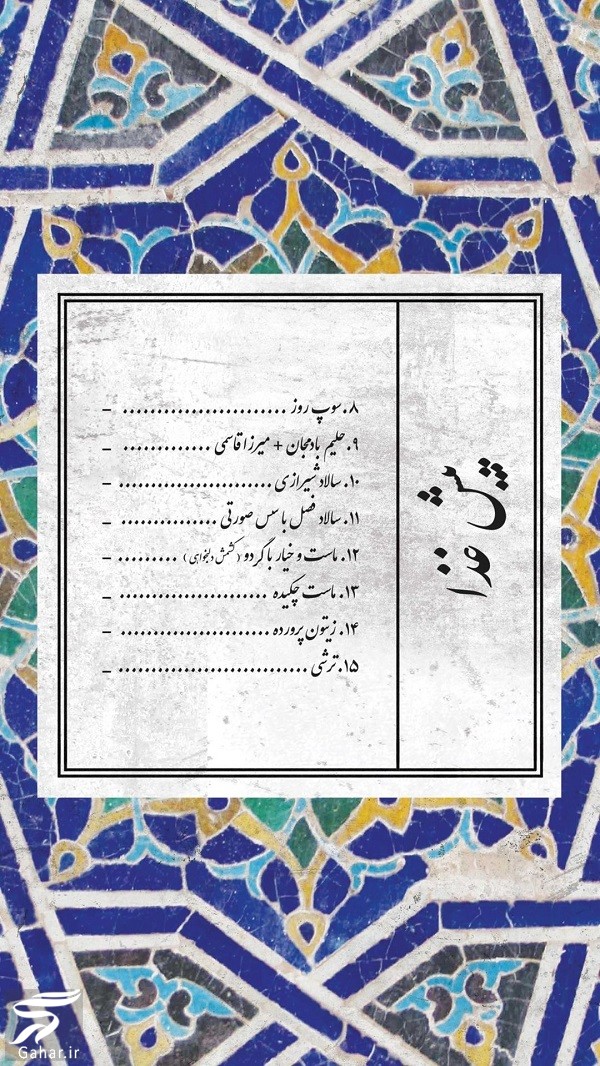 پیش غذا
۸. سوپ روز ......................... _
۹. حلیم بادمجان + میرزا قاسمی ............. _
۱۰. سالاد شیرازی ....................... _
۱۱. سالاد فصل با سس صورتی ............... _
۱۲. ماست و خیار با گردو (کشمش دلخواهی) ......... _
۱۳. ماست چکیده ...................... _
۱۴. زیتون پرورده ....................... _
۱۵. ترشی ............................. _
Gahar.ir